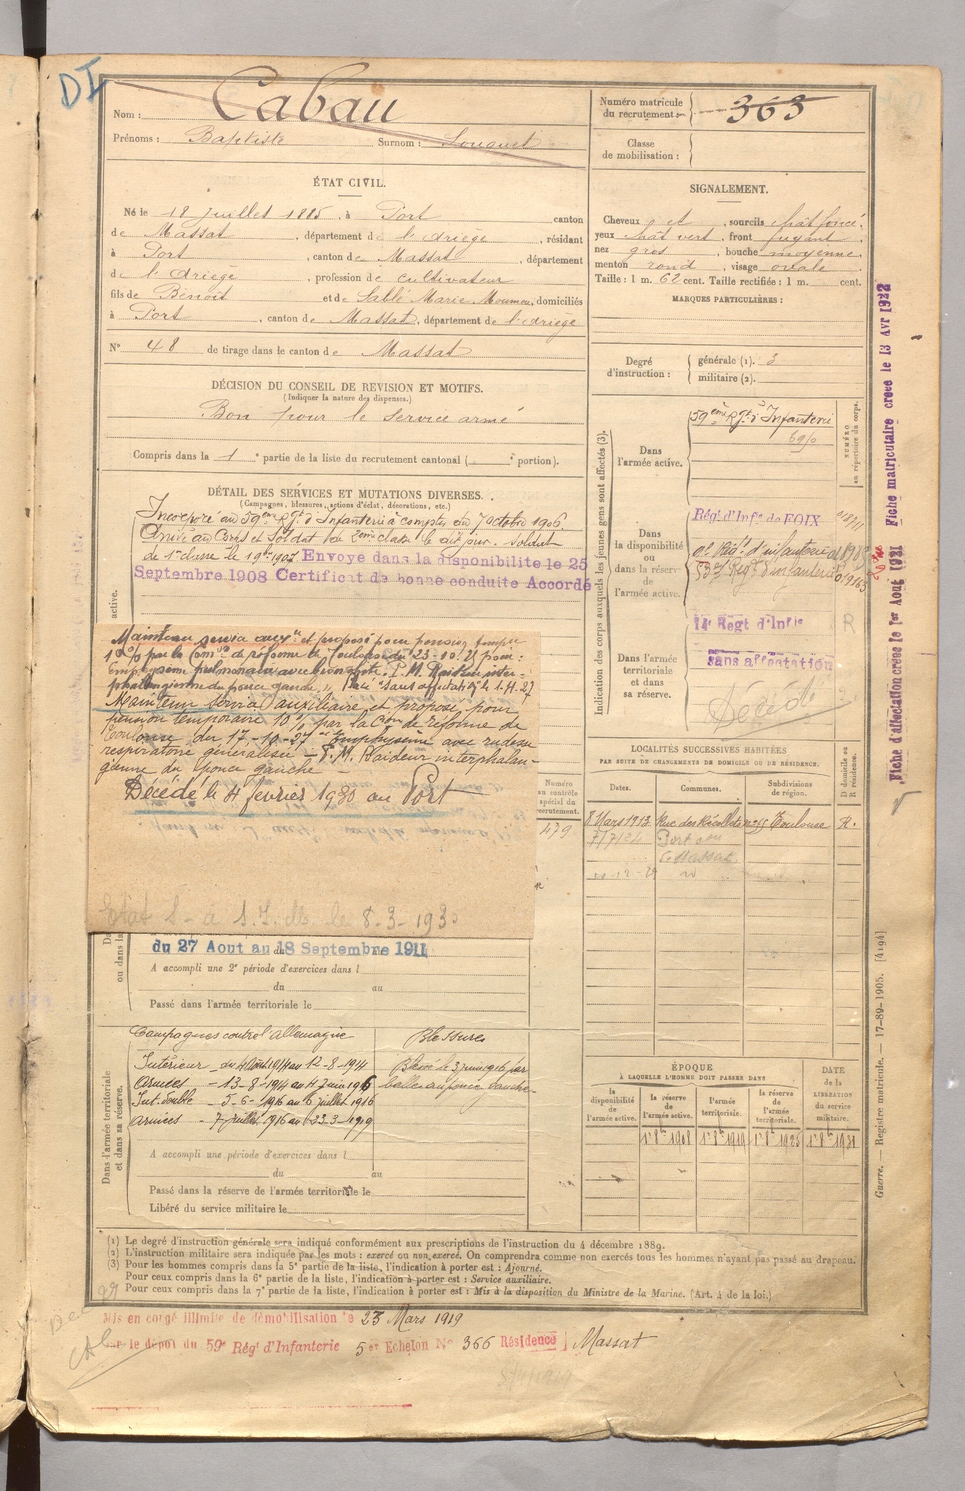 DI
Nom : Cabau
Prénoms : Baptiste Surnom : Louquet
Numéro matricule du recrutement : 363
Classe de mobilisation :
ÉTAT CIVIL.
Né le 18 juillet 1885, à Port canton
de Massat, département de l'Ariège, résidant
à Port, canton de Massat, département
de l'Ariège, profession de cultivateur
fils de Benoît et de Sablé Marie Moumeu, domiciliés
à Port, canton de Massat, département de l'Ariège
N° 48 de tirage dans le canton de Massat
SIGNALEMENT.
Cheveux et, sourcils chât foncé.
yeux chât vert, front fuyant.
nez gros, bouche moyenne.
menton rond, visage ovale.
Taille : 1 m. 62 cent. Taille rectifiée : 1 m. cent.
MARQUES PARTICULIÈRES :
Degré d'instruction : générale (1). 3
militaire (2).
DÉCISION DU CONSEIL DE REVISION ET MOTIFS.
(Indiquer la nature des dispenses.)
Bon pour le service armé
Compris dans la 1e partie de la liste du recrutement cantonal ( e portion).
DÉTAIL DES SERVICES ET MUTATIONS DIVERSES.
(Campagnes, blessures, actions d'éclat, décorations, etc.)
Incorporé au 59ème Rgt d'Infanterie à compter du 7 octobre 1906.
Arrivé au Corps et soldat de 2ème classe le dit jour. Soldat
de 1re classe le 1907 Envoyé dans la disponibilité le 25
Septembre 1908 Certificat de bonne conduite Accordé
active.
Maintenu service auxre et proposé pour pension tempre
10% par la Comon de réforme de Toulouse du 23-10-21 pour :
Emphysème pulmonaire avec bronchite. P.M. Raideur inter-
phalangienne du pouce gauche. Placé "Sans affectation" le 1-11-27
Maintenu service auxiliaire et proposé pour
pension temporaire 10% par la Con de réforme de
Toulouse du 17-10-27 Emphysème avec rudesse
respiratoire généralisée - P.M. Raideur interphalan-
gienne du pouce gauche
Décédé le 4 février 1930 au Port
le 8-3-1930
du 27 Aout au 18 Septembre 1911
A accompli une 2e période d'exercices dans l
du au
Passé dans l'armée territoriale le
Dans l'armée territoriale et dans sa réserve.
Campagnes contre l'allemagne
Intérieur du 4 Août 1914 au 12-8-1914
Armées - 13-8-1914 au 4 juin 1916
Int. double - 5-6-1916 au 6 juillet 1916
Armées - 7 juillet 1916 au 23-3-1919
Blessures
Blessé le 3 juin 1916 par
balle au pouce gauche
A accompli une période d'exercices dans l
du au
Passé dans la réserve de l'armée territoriale le
Libéré du service militaire le
Indication des corps auxquels les jeunes gens sont affectés (3).
NUMÉRO au répertoire du corps.
Dans l'armée active.
59ème Rgt d'Infanterie
Dans la disponibilité ou dans la réserve de l'armée active.
Régt d'Infie de FOIX
Régt d'infanterie
Dans l'armée territoriale et dans sa réserve.
14e Regt d'Infie
sans affectation
Décédé
R
LOCALITÉS SUCCESSIVES HABITÉES
PAR SUITE DE CHANGEMENTS DE DOMICILE OU DE RÉSIDENCE.
Dates. Communes. Subdivisions de région. D domicile ou R résidence.
Numéro au contrôle spécial du recrutement.
479
8 Mars 1913 Rue des Récollets Toulouse R.
Port
Massat
ÉPOQUE
À LAQUELLE L'HOMME DOIT PASSER DANS
la disponibilité de l'armée active. la réserve de l'armée active. l'armée territoriale. la réserve de l'armée territoriale.
DATE de la LIBÉRATION du service militaire.
1er 8bre 1908 1er 8bre 1919 1er 8bre 1925 1er 8bre 1931
(1) Le degré d'instruction générale sera indiqué conformément aux prescriptions de l'instruction du 4 décembre 1889.
(2) L'instruction militaire sera indiquée par les mots : exercé ou non exercé. On comprendra comme non exercés tous les hommes n'ayant pas passé au drapeau.
(3) Pour les hommes compris dans la 5e partie de la liste, l'indication à porter est : Ajourné.
Pour ceux compris dans la 6e partie de la liste, l'indication à porter est : Service auxiliaire.
Pour ceux compris dans la 7e partie de la liste, l'indication à porter est : Mis à la disposition du Ministre de la Marine. (Art. 4 de la loi.)
Mis en congé illimité de démobilisation le 23 Mars 1919
le dépôt du 59e Régt d'Infanterie 5 er Echelon N° 366 Résidence Massat
Fiche d'affectation créée le 1er Aout 1921 Fiche matriculaire créée le 13 Avr 1922
Guerre. — Registre matricule. — 17-89-1905. [4194]